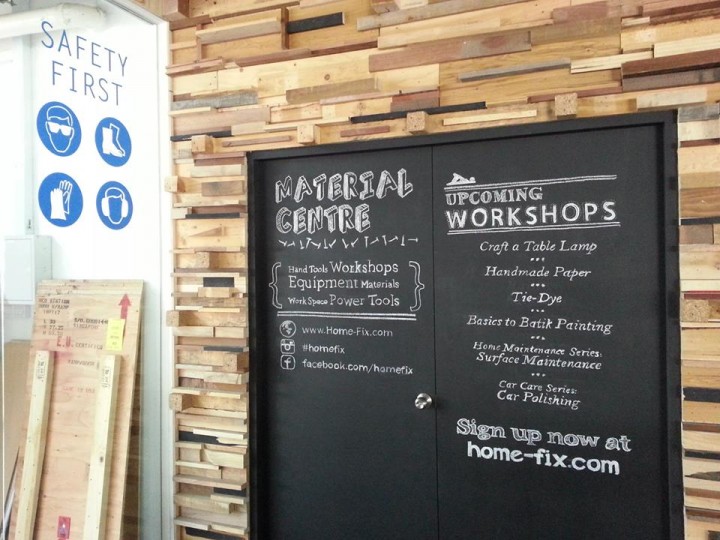 SAFETY
FIRST
MATERIAL
CENTRE
Hand Tools Workshops
Equipment Materials
Work Space Power Tools
www.Home-Fix.com
#homefix
facebook.com/homefix
UPCOMING
WORKSHOPS
Craft a Table Lamp
Handmade Paper
Tie-Dye
Basics to Batik Painting
Home Maintenance Series:
Surface Maintenance
Car Care Series:
Car Polishing
Sign up now at
home-fix.com